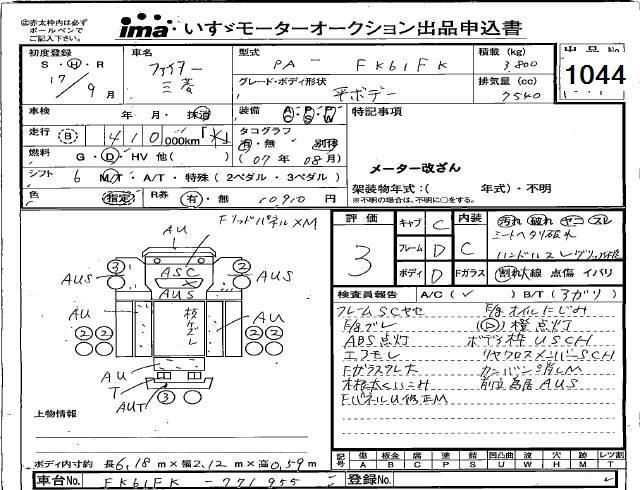 ㊟赤太枠内は必ず
ボールペンで
ご記入下さい。
ima いすゞモーターオークション出品申込書
出品No.
1044
初度登録
S・H・R
17/9月
車名
ファイター
三菱
型式
PA- FK61FK
積載 (kg)
3,800
グレード・ボディ形状
平ボデー
排気量 (cc)
7540
車検 年 月・抹消
装備 A・P・P
C・S・W
特記事項
走行 B 410 000km
タコグラフ
有・無 別体
(07年08月)
燃料 G・D・HV 他( )
メーター改ざん
シフト 6 M/T・A/T・特殊(2ペダル・3ペダル)
架装物年式:( 年式)・不明
※不明の場合は、不明に○をする。
色 指定 R券 有・無 10,910円
評価
3
キャブ C
フレーム D
ボディ D
内装 C
汚れ 破れ ヤニ スレ
シートヘタリ破れ
Fガラス 割れ大 線 点傷 イバリ
検査員報告 A/C(✓) B/T(3ガリ)
フレームSCサビ
E/gオイルにじみ
E/gブレ
橙点灯
ABS点灯
ボデー枠USCH
エアモレ
リヤクロスメンバーSCH
Fガラスワレ大
カンバン消しM
FパネルU修正M
FリッドパネルXM
AU
3
2
AUS
ASC
AUS
AUS
AU
AU
2 2
2 2
AU
T
AUT
3
上物情報
ボディ内寸約 長6.18m×幅2.12m×高0.59m
記号 傷A 板金B 腐C 塗P 錆S 凹凸曲U 波W 穴H 跡M レツ割T
車台No. FK61FK - 771955
登録No.